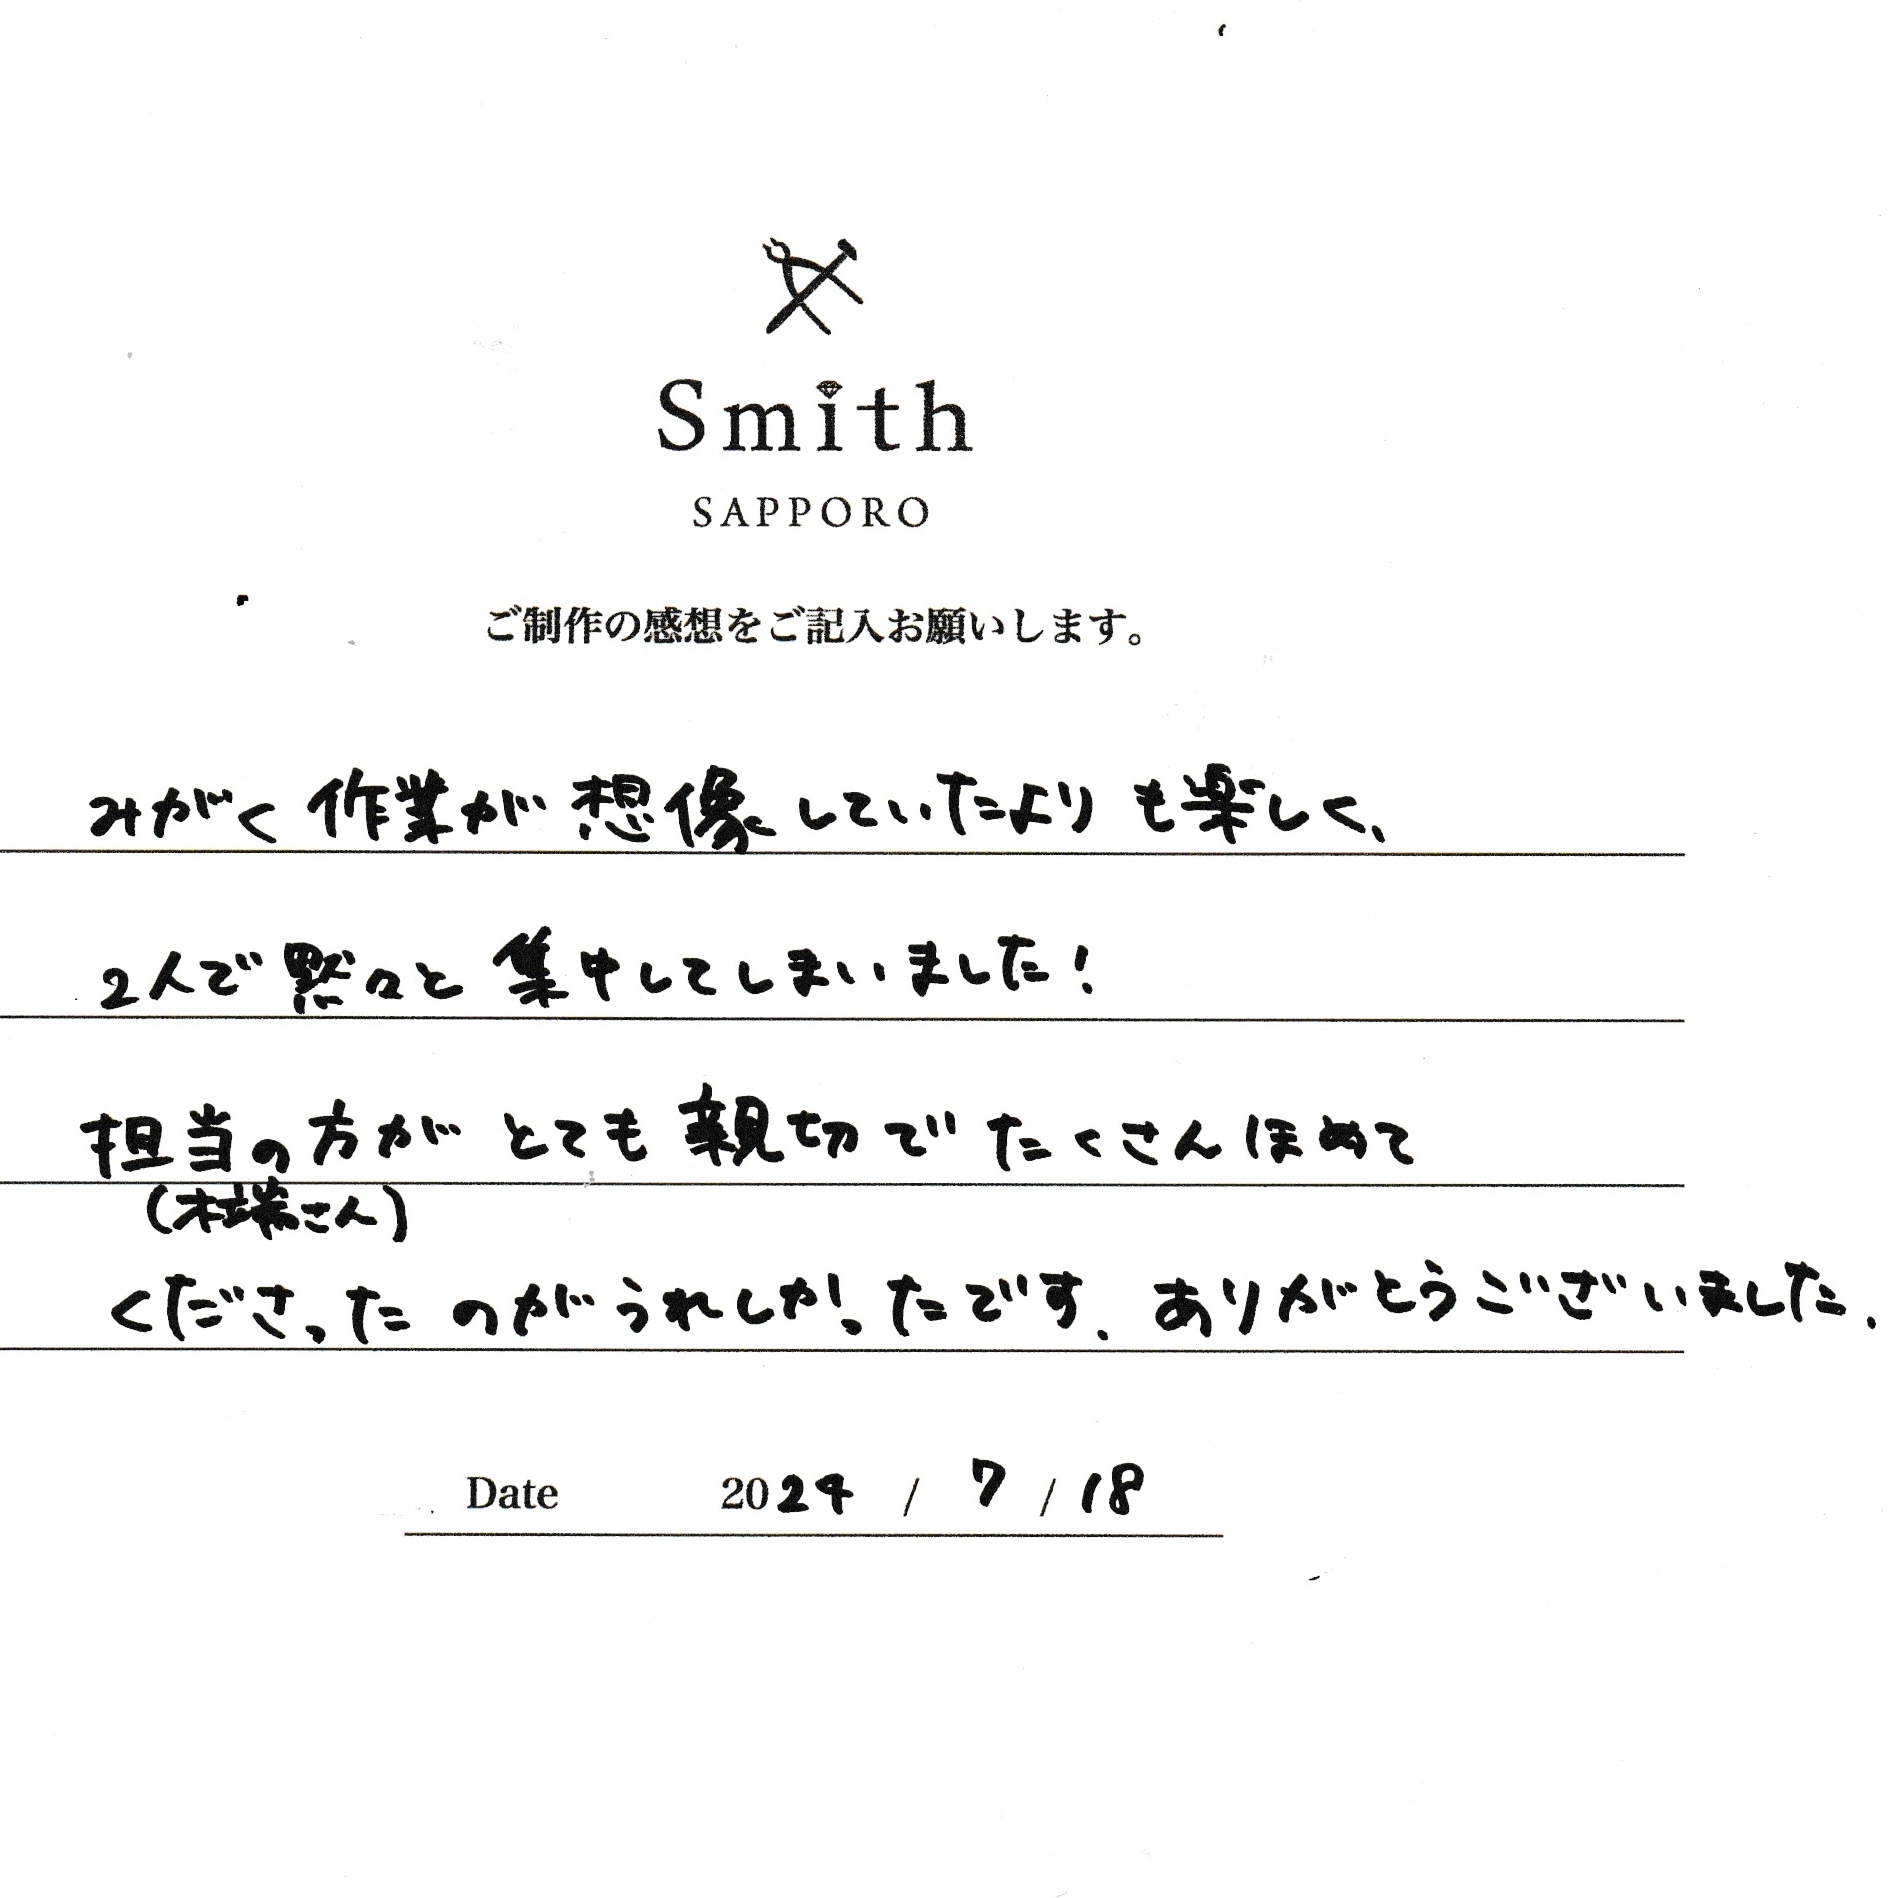 Smith
SAPPORO
ご制作の感想をご記入お願いします。
みがく作業が想像していたよりも楽しく、
2人で黙々と集中してしまいました!
担当の方がとても親切でたくさんほめて
(木端さん)
くださったのがうれしかったです. ありがとうございました.
Date 2024 / 7 / 18